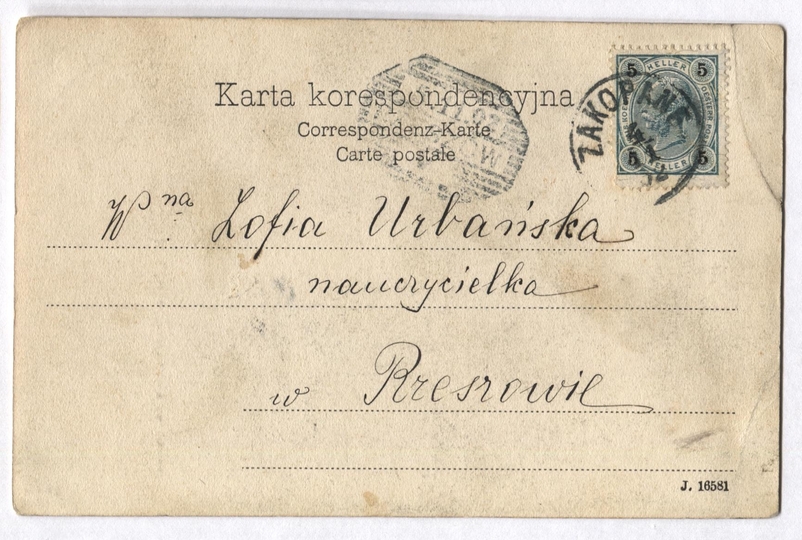 Karta korespondencyjna
Correspondenz-Karte
Carte postale
5 HELLER 5
5 HELLER 5
ZAKOPANE
Wna Zofia Urbańska
nauczycielka
w Rzeszowie
J. 16581